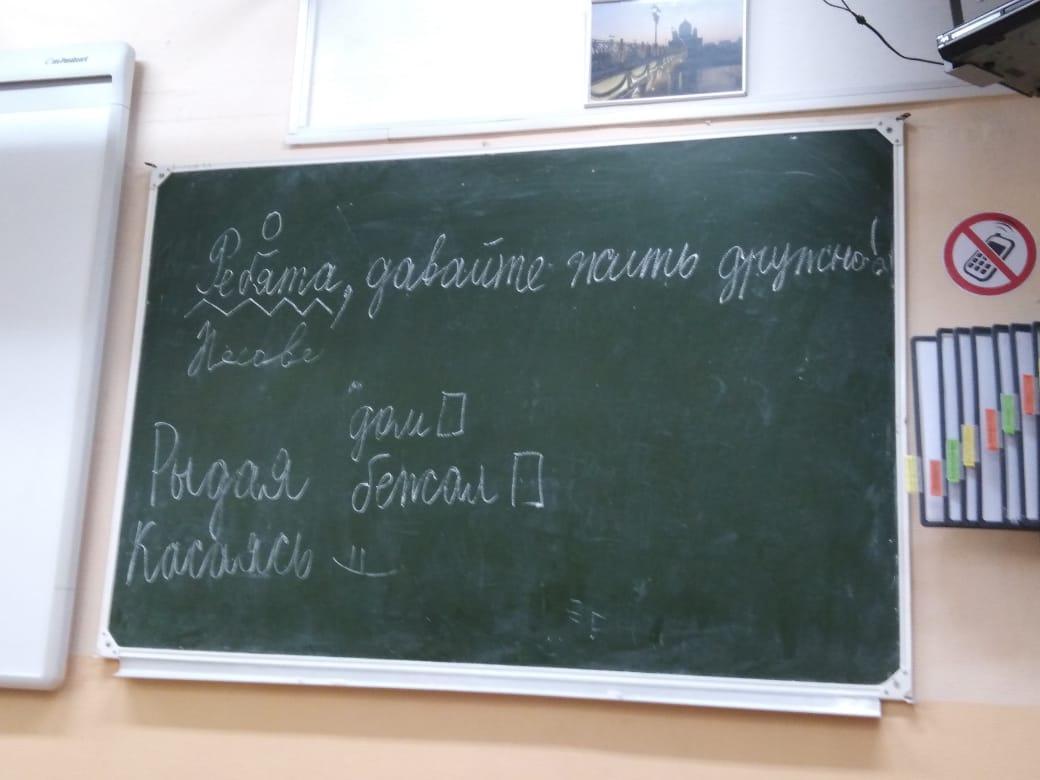 О
Ребята, давайте жить дружно!
дом
Рыдая бежал
Касаясь